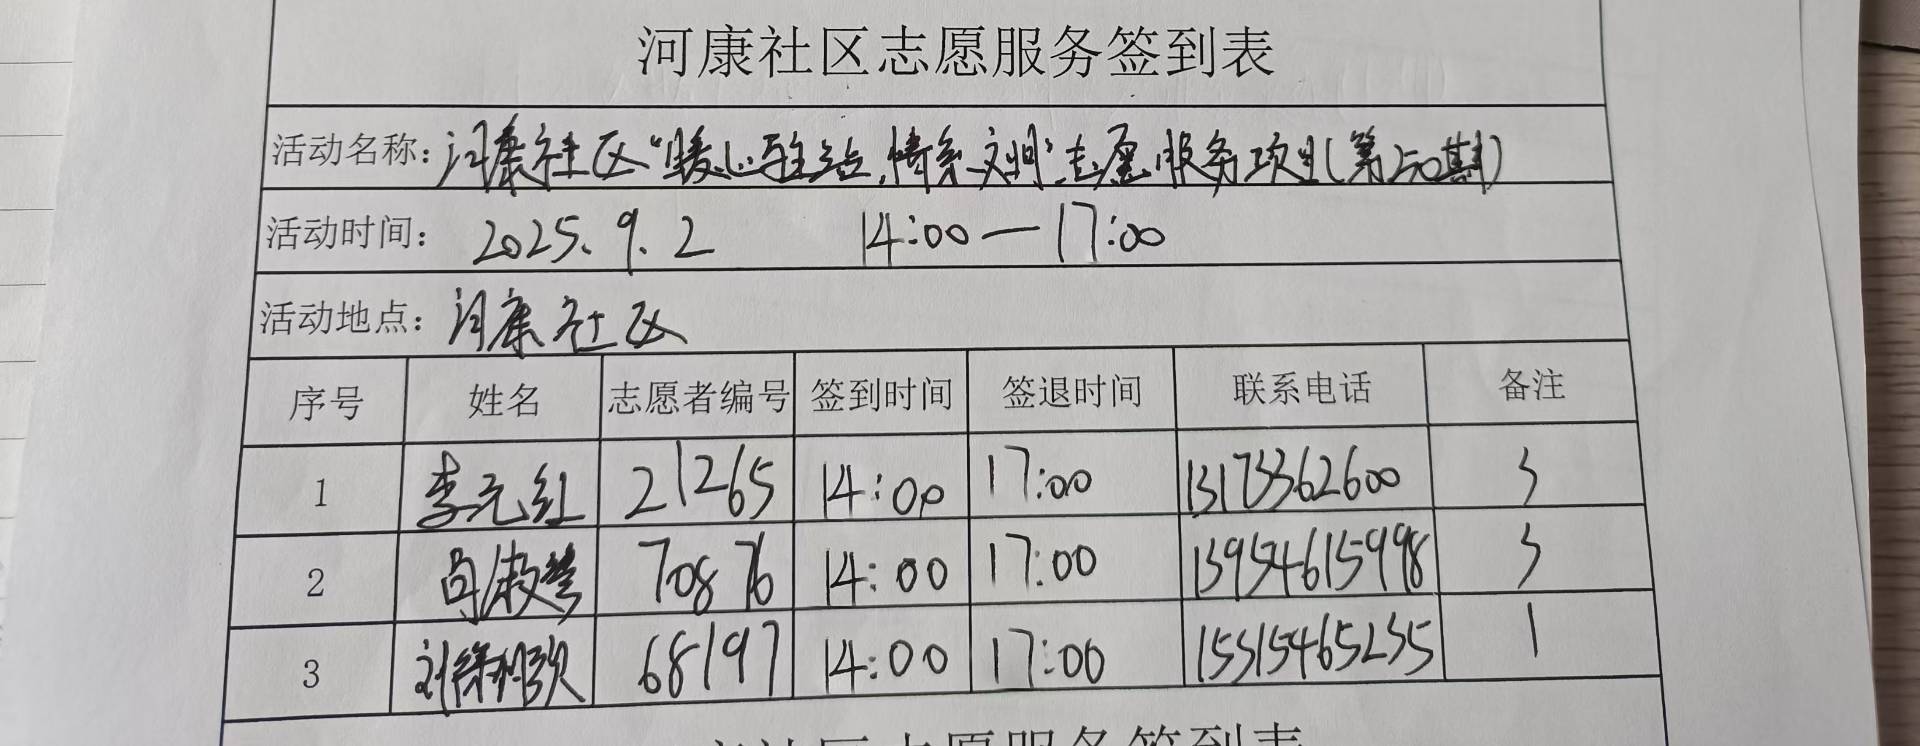 河康社区志愿服务签到表
活动名称：河康社区“暖心驻站，情系文明”志愿服务项目（第250期）
活动时间： 2025.9.2 14:00—17:00
活动地点：河康社区
序号 姓名 志愿者编号 签到时间 签退时间 联系电话 备注
1 李元红 21265 14:00 17:00 13173362600 3
2 70876 14:00 17:00 13954615998 3
3 68197 14:00 17:00 15315465235 1
社区志愿服务签到表